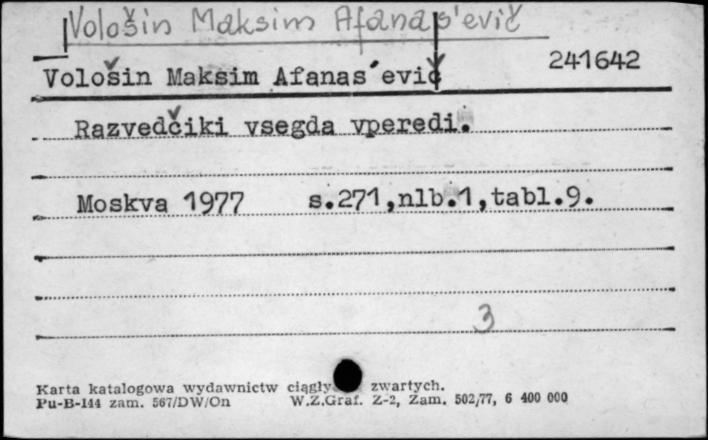 Vološin Maksim Afanas'evič
Vološin Maksim Afanas'evič 241642
Razvedčiki vsegda vperedi.
Moskva 1977 s.271,nlb.1,tabl.9.
3
Karta katalogowa wydawnictw zwartych.
Pu-B-144 zam. 567/DW/On W.Z.Graf. Z-2, Zam. 502/77, 6 400 000